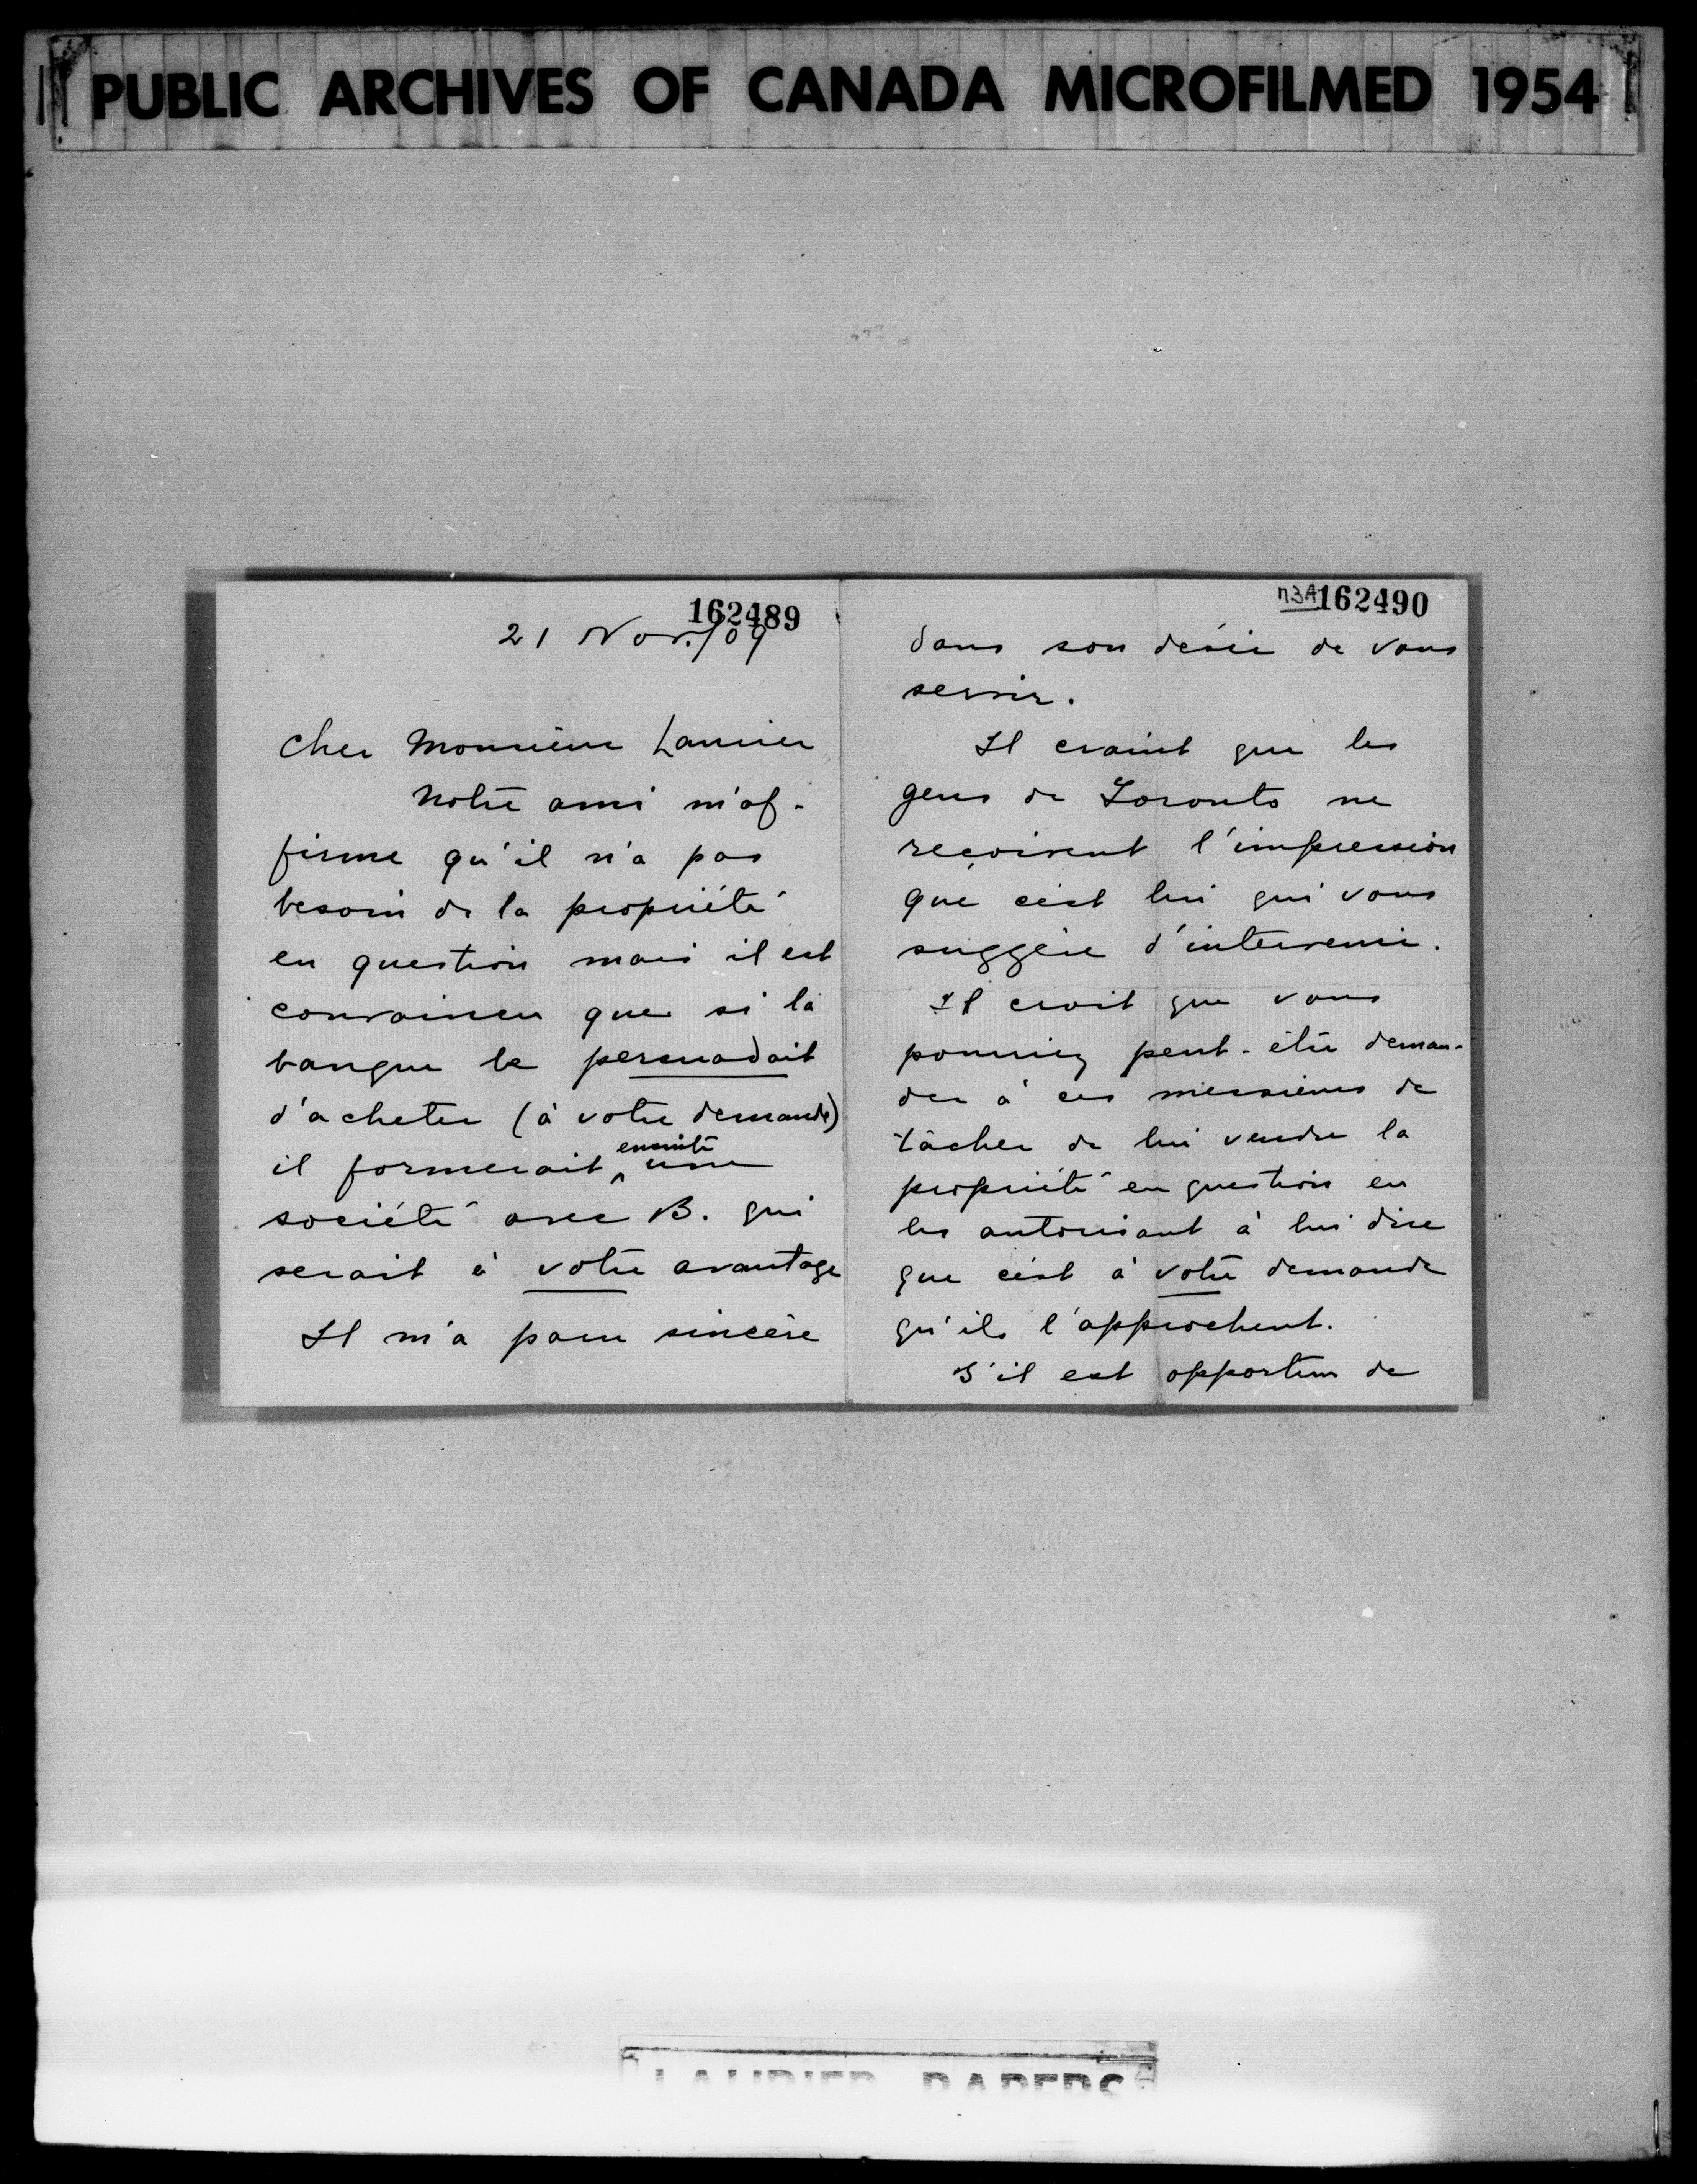 PUBLIC ARCHIVES OF CANADA MICROFILMED 1954
162489
21 Nov./09
Cher Monsieur Laurier
Notre ami m'af-
firme qu'il n'a pas
besoin de la propriété
en question mais il est
convaincu que si la
banque le persuadait
d'acheter (à votre demande)
il formerait ensuite une
société avec B. qui
serait à votre avantage
Il m'a paru sincère
n3A 162490
dans son désir de vous
servir.
Il craint que les
gens de Toronto ne
reçoivent l'impression
que c'est lui qui vous
suggère d'intervenir.
Il croit que vous
pourriez peut-être deman-
der à ces messieurs de
tâcher de lui vendre la
propriété en question en
les autorisant à lui dire
que c'est à votre demande
qu'ils l'approchent.
S'il est opportun de
LAURIER PAPERS